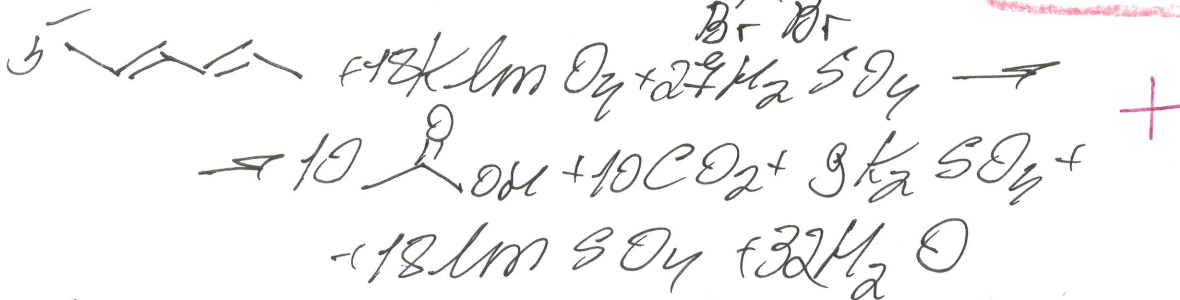 Br Br
5 + 18KMnO4 + 27H2SO4 →
→ 10 O OH + 10CO2 + 9K2SO4 +
+ 18MnSO4 + 32H2O
+